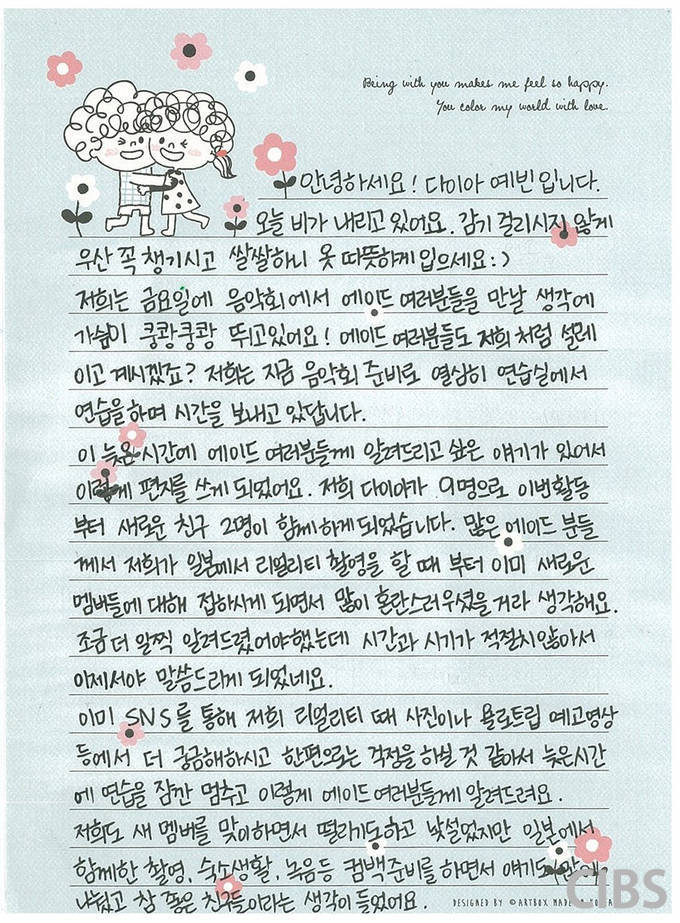 Being with you makes me feel so happy.
You color my world with love.
안녕하세요! 다이아 예빈입니다.
오늘 비가 내리고 있어요. 감기 걸리시지 않게
우산 꼭 챙기시고 쌀쌀하니 옷 따뜻하게 입으세요:)
저희는 금요일에 음악회에서 에이드 여러분들을 만날 생각에
가슴이 쿵쾅쿵쾅 뛰고있어요! 에이드 여러분들도 저희처럼 설레
이고 계시겠죠? 저희는 지금 음악회 준비로 열심히 연습실에서
연습을하며 시간을 보내고 있답니다.
이 늦은 시간에 에이드 여러분들께 알려드리고 싶은 얘기가 있어서
이렇게 편지를 쓰게 되었어요. 저희 다이아가 9명으로 이번활동
부터 새로운 친구 2명이 함께하게 되었습니다. 많은 에이드 분들
께서 저희가 일본에서 리얼리티 촬영을 할 때 부터 이미 새로운
멤버들에 대해 접하시게 되면서 많이 혼란스러우셨을거라 생각해요.
조금 더 일찍 알려드렸어야했는데 시간과 시기가 적절치않아서
이제서야 말씀드리게 되었네요.
이미 SNS를 통해 저희 리얼리티 때 사진이나 욜로트립 예고영상
등에서 더 궁금해하시고 한편으로는 걱정을 하실 것 같아서 늦은시간
에 연습을 잠깐 멈추고 이렇게 에이드 여러분들께 알려드려요.
저희도 새 멤버를 맞이하면서 떨리기도하고 낯설었지만 일본에서
함께한 촬영, 숙소생활, 녹음등 컴백준비를 하면서 얘기도 많이
나눴고 참 좋은 친구들이라는 생각이 들었어요.
DESIGNED BY © ARTBOX MADE IN KOREA
CIBS